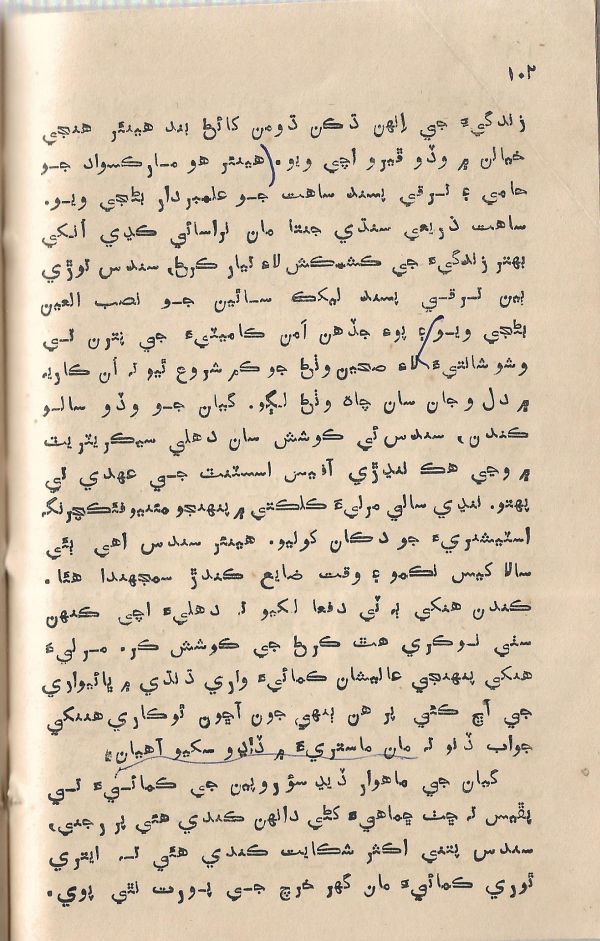 ١٠٣
زندگيءَ جي اِنهن ڌڪن ڌومن کائڻ بند هينئر هنجي
خيالن ۾ وڏو ڦيرو اچي ويو. هينئر هو مارڪسواد جو
حامي ۽ ترقي پسند ساهت جو علمبردار بڻجي ويو.
ساهت ذريعي سنڌي جنتا مان نراسائي ڪڍي اُنکي
بهتر زندگيءَ جي ڪشمڪش لاءِ تيار ڪرڻ، سندس توڙي
ٻين ترقي پسند ليکڪ ساٿين جو نصب العين
بڻجي ويو ۽ پوءِ جڏهن اَمن ڪاميٽيءَ جي پٽرن تي
وشو شانتيءَ لاءِ صحيون وٺڻ جو ڪم شروع ٿيو تہ اُن ڪاريہ
۾ دل و جان سان چاهہ وٺڻ لڳو. گيان جو وڏو سالو
ڪندن، سندس ئي ڪوشش سان دهلي سيڪريٽريٽ
۾ وڃي هڪ ننڍڙي آفيس اسسٽنٽ جي عهدي تي
پهتو. ننڍي سالي مرليءَ ڪلڪتي ۾ پنهنجو مئنيوفئڪچرنگ
اسٽيشنريءَ جو دڪان کوليو. هينئر سندس اهي ٻئي
سالا کيس نڪمو ۽ وقت ضايع ڪندڙ سمجهندا هئا.
ڪندن هنکي ٻہ ٽي دفعا لکيو تہ دهليءَ اچي ڪنهن
سٺي نوڪري هٿ ڪرڻ جي ڪوشش ڪر. مرليءَ
هنکي پنهنجي عاليشان ڪمائيءَ واري ڌنڌي ۾ ڀائيواري
جي آڇ ڪئي پر هن ٻنهي جون آڇون ٺوڪاري هنکي
جواب ڏنو تہ مان ماستريءَ ۾ ڏاڍو سکيو آهيان.
گيان جي ماهوار ڏيڍ سؤ روپين جي ڪمائيءَ تي
پڦيس تہ ڇٽ ڇماهيءَ کڻي دانهن ڪندي هئي پر رجني،
سندس پتني اڪثر شڪايت ڪندي هئي تہ ايتري
ٿوري ڪمائيءَ مان گهر خرچ جي پورت نٿي پوي.